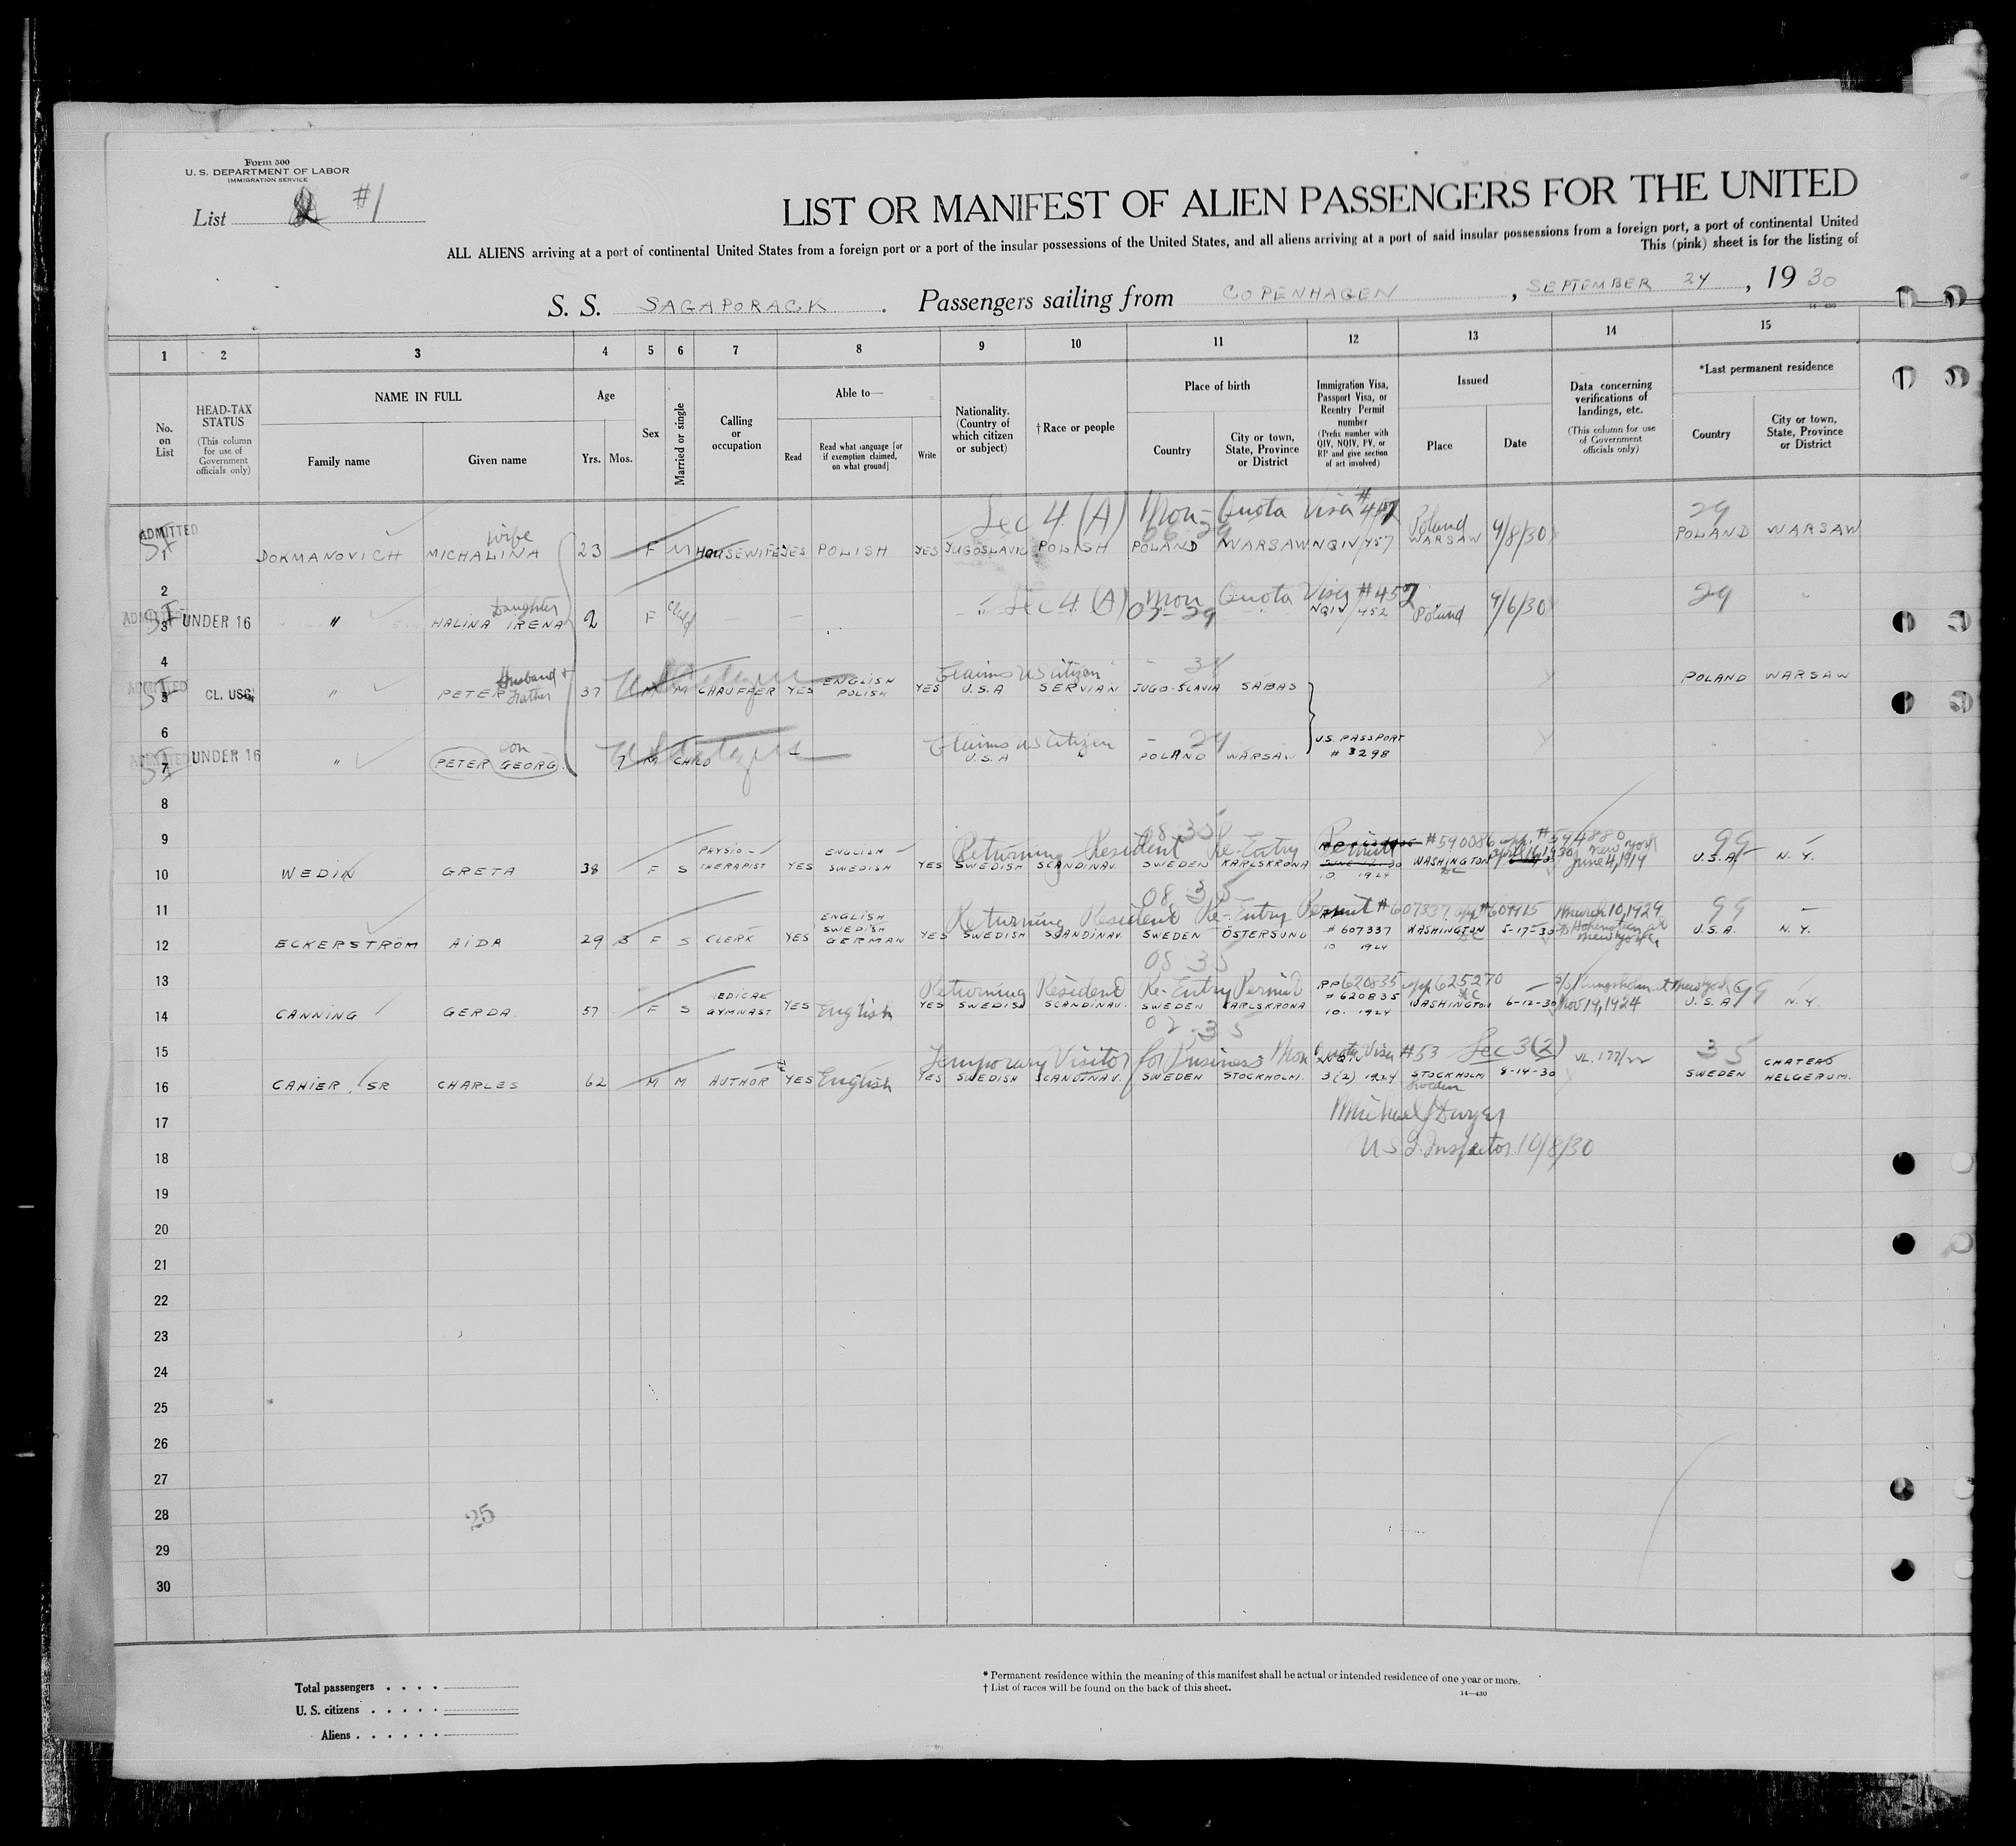 Form 500
U. S. DEPARTMENT OF LABOR
IMMIGRATION SERVICE
List #1
LIST OR MANIFEST OF ALIEN PASSENGERS FOR THE UNITED
ALL ALIENS arriving at a port of continental United States from a foreign port or a port of the insular possessions of the United States, and all aliens arriving at a port of said insular possessions from a foreign port, a port of continental United
This (pink) sheet is for the listing of
S. S. SAGAPORACK . Passengers sailing from COPENHAGEN , SEPTEMBER 24 , 19 30
14—430
1 2 3 4 5 6 7 8 9 10 11 12 13 14 15
No. on List
HEAD-TAX STATUS
(This column for use of Government officials only)
NAME IN FULL
Family name Given name
Age
Yrs. Mos.
Sex
Married or single
Calling or occupation
Able to—
Read
Read what language [or if exemption claimed, on what ground]
Write
Nationality. (Country of which citizen or subject)
† Race or people
Place of birth
Country
City or town, State, Province or District
Immigration Visa, Passport Visa, or Reentry Permit number
(Prefix number with QIV, NQIV, PV, or RP and give section of act involved)
Issued
Place Date
Data concerning verifications of landings, etc.
(This column for use of Government officials only)
*Last permanent residence
Country
City or town, State, Province or District
Sec 4 (A) Non-Quota Visa #457 29
ADMITTED wife Poland
1 DOKMANOVICH MICHALINA 23 F M HOUSEWIFE YES POLISH YES JUGOSLAVIC POLISH POLAND WARSAW NQIV/457 WARSAW 9/8/30 POLAND WARSAW
2 Sec 4 (A) Non Quota Visa #452 29
ADMITTED Daughter
3 UNDER 16 " HALINA IRENA 2 F Child " NQIV/452 Poland 9/6/30 "
4 Husband + Father Claims US Citizen
ADMITTED US Citizens
5 CL. USC. " PETER 37 M M CHAUFFER YES ENGLISH POLISH YES U.S.A SERVIAN JUGO-SLAVIA SABAS POLAND WARSAW
6 son Claims US Citizen 29
ADMITTED US Citizens U.S. PASSPORT # 3298
7 UNDER 16 " PETER GEORG. 7 M CHILD U.S.A POLAND WARSAW
8
08 35
9 Returning Resident Re-Entry Permit #590086 app. #594880 99
10 WEDIN GRETA 38 F S PHYSIO-THERAPIST YES ENGLISH SWEDISH YES SWEDISH SCANDINAV. SWEDEN KARLSKRONA 10 1924 WASHINGTON DC April 16, 1930 New York June 4, 1919 U.S.A. N.Y.
08 35
11 Returning Resident Re-Entry Permit #607337 app #609415 March 10, 1929 99
12 ECKERSTRÖM AIDA 29 3 F S CLERK YES ENGLISH SWEDISH GERMAN YES SWEDISH SCANDINAV. SWEDEN ÖSTERSUND # 607337 10 1924 WASHINGTON DC 5-17-30 New York U.S.A. N.Y.
08 35
13 Returning Resident Re-Entry Permit RP 620835 app 625270 99
14 CANNING GERDA. 57 F S MEDICAL GYMNAST YES English YES SWEDISH SCANDINAV. SWEDEN KARLSKRONA # 620835 10. 1924 WASHINGTON DC 6-12-30 Nov 14, 1924 U.S.A. N.Y.
02-35
15 Temporary Visitor for Business Non Quota Visa #53 Sec 3(2) 35
16 CAHIER SR CHARLES 62 M M AUTHOR YES English YES SWEDISH SCANDINAV. SWEDEN STOCKHOLM. NQIV 3(2) 1924 STOCKHOLM Sweden 8-14-30 SWEDEN CHATEAU HELGERUM.
17 Michael J Dwyer
18 U S I. Inspector 10/8/30
19
20
21
22
23
24
25
26
27
28 25
29
30
Total passengers . . . .
U. S. citizens . . . . .
Aliens . . . . . .
* Permanent residence within the meaning of this manifest shall be actual or intended residence of one year or more.
† List of races will be found on the back of this sheet.
14—430